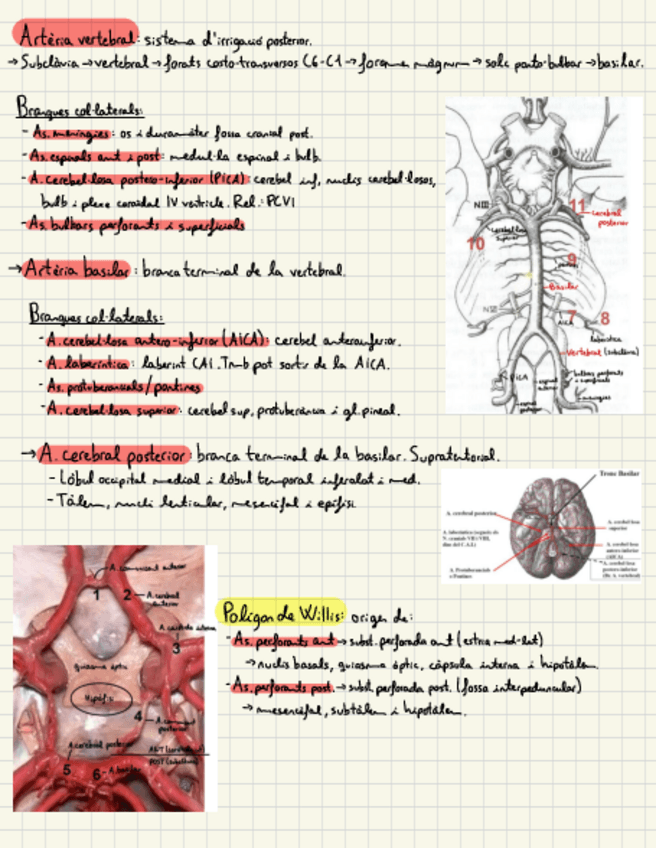 Artèria vertebral: sistema d'irrigació posterior.
→ Subclàvia → vertebral → forats costo-transversos C6-C1 → foramen màgnum → solc ponto-bulbar → basilar.
Branques col·laterals:
- As. meníngies: os i duramàter fossa cranial post.
- As. espinals ant i post: medul·la espinal i bulb.
- A. cerebel·losa postero-inferior (PICA): cerebel inf, nuclis cerebel·losos,
bulb i plexe coroidal IV ventricle. Rel.: PCVI
- As. bulbars perforants i superficials
→ Artèria basilar: branca terminal de la vertebral.
Branques col·laterals:
- A. cerebel·losa antero-inferior (AICA): cerebel anteroinferior.
- A. laberíntica: laberint CAI. Tmb pot sortir de la AICA.
- As. protuberancials/pontines
- A. cerebel·losa superior: cerebel sup, protuberància i gl. pineal.
11
cerebral
posterior
10
cerebel·losa
superior
9
Basilar
7
8
AICA
laberíntica
Vertebral (subclàvia)
PICA
bulbars perforants
i superficials
meníngies
espinal
anterior
espinal
posterior
→ A. cerebral posterior: branca terminal de la basilar. Supratentorial.
- Lòbul occipital medial i lòbul temporal inferolat i med.
- Tàlem, nucli lenticular, mesencèfal i epífisi
Tronc Basilar
A. cerebral posterior
A. cerebel·losa
superior
A. cerebel·losa
antero-inferior
(AICA)
A. Protuberancials
o Pontines
A. cerebel·losa
postero-inferior
(De A. vertebral)
A. comunicant anterior
1
2
A. cerebral
anterior
A. caròtida interna
3
quiasma òptic
Hipòfisi
4
A. comunicant
posterior
A. cerebral posterior
ANT (caròtida)
POST (subclàvia)
5
6
A. basilar
Polígon de Willis: origen de:
- As. perforants ant → subst. perforada ant (estria med-lat)
→ nuclis basals, quiasma òptic, càpsula interna i hipotàlem.
- As. perforants post. → subst. perforada post. (fossa interpeduncular)
→ mesencèfal, subtàlem i hipotàlem.